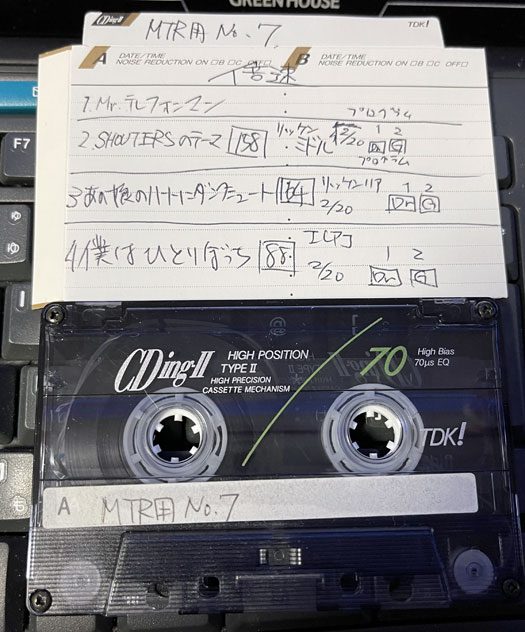 GREEN HOUSE
CDing-II MTR用 No.7 TDK!
A DATE/TIME
NOISE REDUCTION ON □B □C □ OFF□
B DATE/TIME
NOISE REDUCTION ON □B □C OFF□
1. Mr.テレフォンマン
プログラム
2. SHOUTERSのテーマ 158 リッケン ミドル 2/20 1 2 Dr G
プログラム
3 あの娘のハートにダンクシュート 164 リッケン リア 2/20 1 2 Dr G
4 僕はひとりぼっち 88 エレアコ 2/20 1 2 Dr G
F7
CDing-II HIGH POSITION
TYPE II
HIGH PRECISION
CASSETTE MECHANISM
70
High Bias
70μs EQ
TDK!
A MTR用 No.7